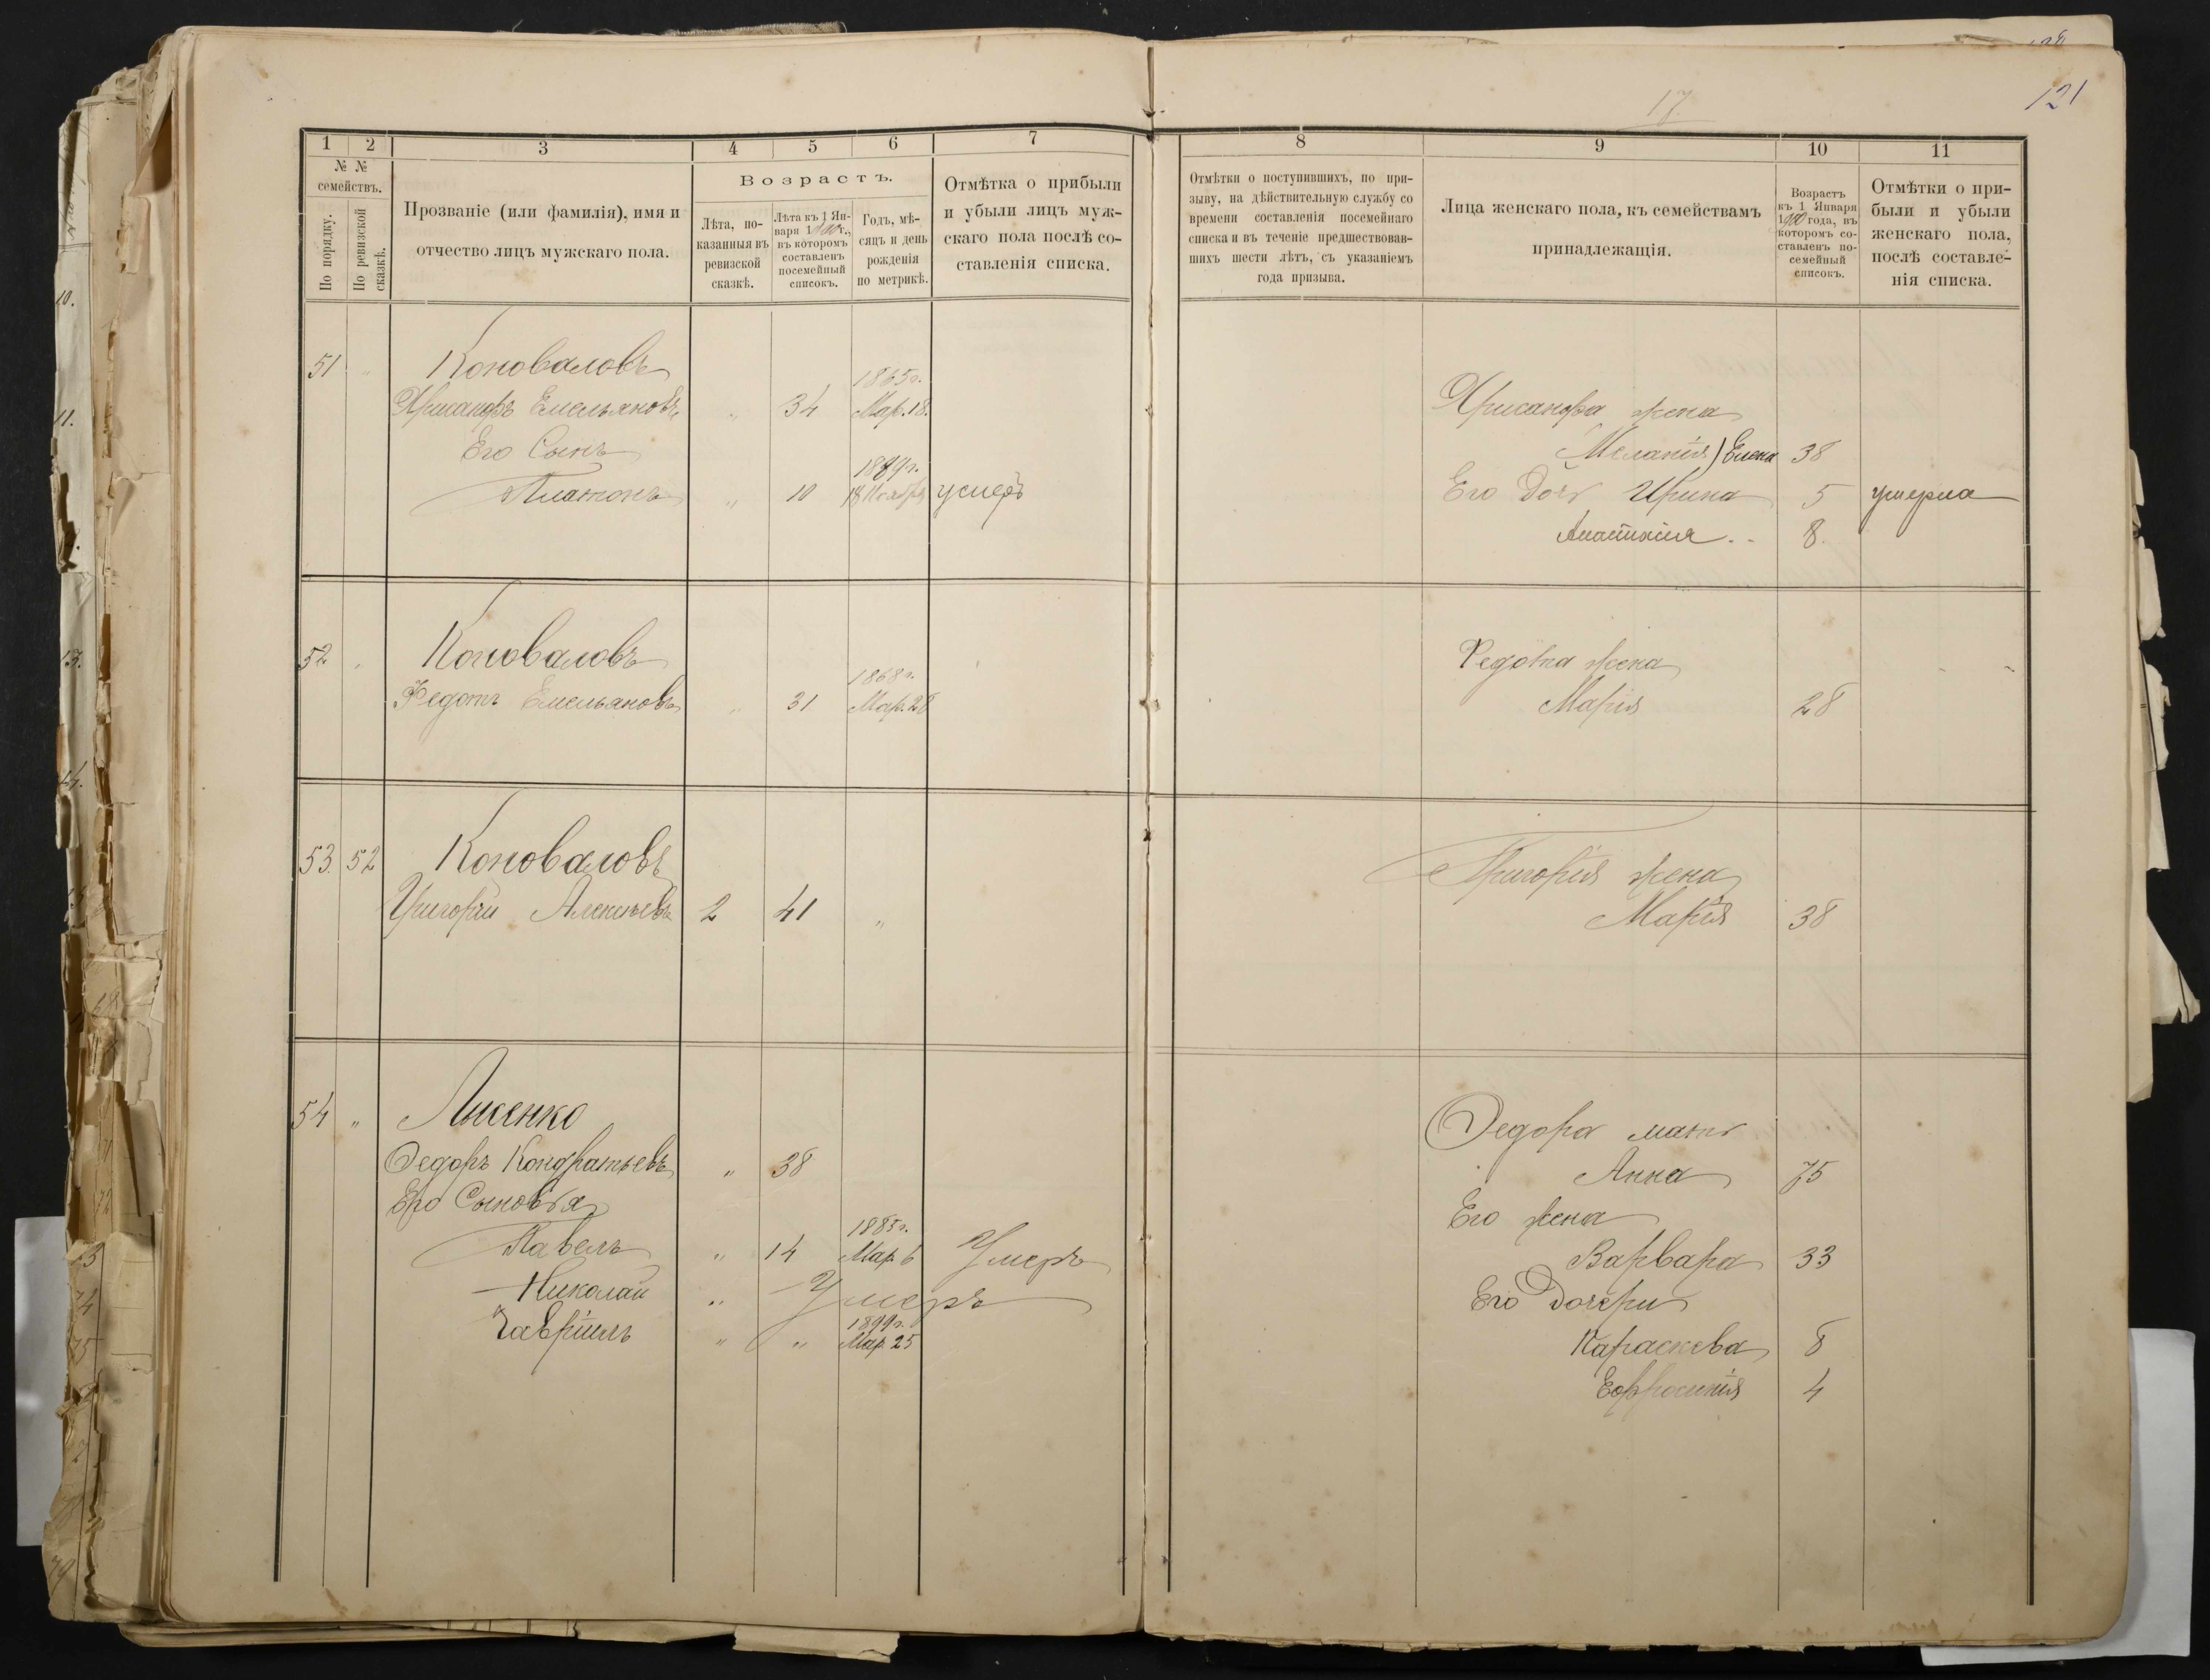 17.
121
1
2
3
4
5
6
7
8
9
10
11
№ №
семействъ.
По порядку.
По ревизской
сказкѣ.
Прозваніе (или фамилія), имя и
отчество лицъ мужскаго пола.
Возрастъ.
Лѣта, по-
казанныя въ
ревизской
сказкѣ.
Лѣта къ 1 Ян-
варя 1900г.,
въ которомъ
составленъ
посемейный
списокъ.
Годъ, мѣ-
сяцъ и день
рожденія
по метрикѣ.
Отмѣтка о прибыли
и убыли лицъ муж-
скаго пола послѣ со-
ставленія списка.
Отмѣтки о поступившихъ, по при-
зыву, на дѣйствительную службу со
времени составленія посемейнаго
списка и въ теченіе предшествовав-
шихъ шести лѣтъ, съ указаніемъ
года призыва.
Лица женскаго пола, къ семействамъ
принадлежащія.
Возрастъ
къ 1 Января
1900 года, въ
которомъ со-
ставленъ по-
семейный
списокъ.
Отмѣтки о при-
были и убыли
женскаго пола,
послѣ составле-
нія списка.
51 " Коноваловъ
1865г.
Хрисанфъ Емельяновъ " 34 Мар. 18.
Его Сынъ
1889г.
Платонъ " 10 18 Ноября умеръ
Хрисанфа жена
Меланія) Елена 38
Его Дочь Ирина 5 умерла
8.
52 Коноваловъ
1868г.
Федотъ Емельяновъ " 31 Мар. 28
Федота жена
Марія 28
53. 52 Коноваловъ
Григорій Алексѣевъ 2 41 "
Григорія жена
Марія 38
54 " Лисенко
Федоръ Кондратьевъ " 38
Его Сыновья
1885г.
Павелъ " 14 Мар. 6 Умеръ
Николай " Умеръ
1899г.
Гавріилъ " " Мар. 25
Федора мать
Анна 75
Его жена
Варвара 33
Его Дочери
Параскева 8
Ефросинія 4